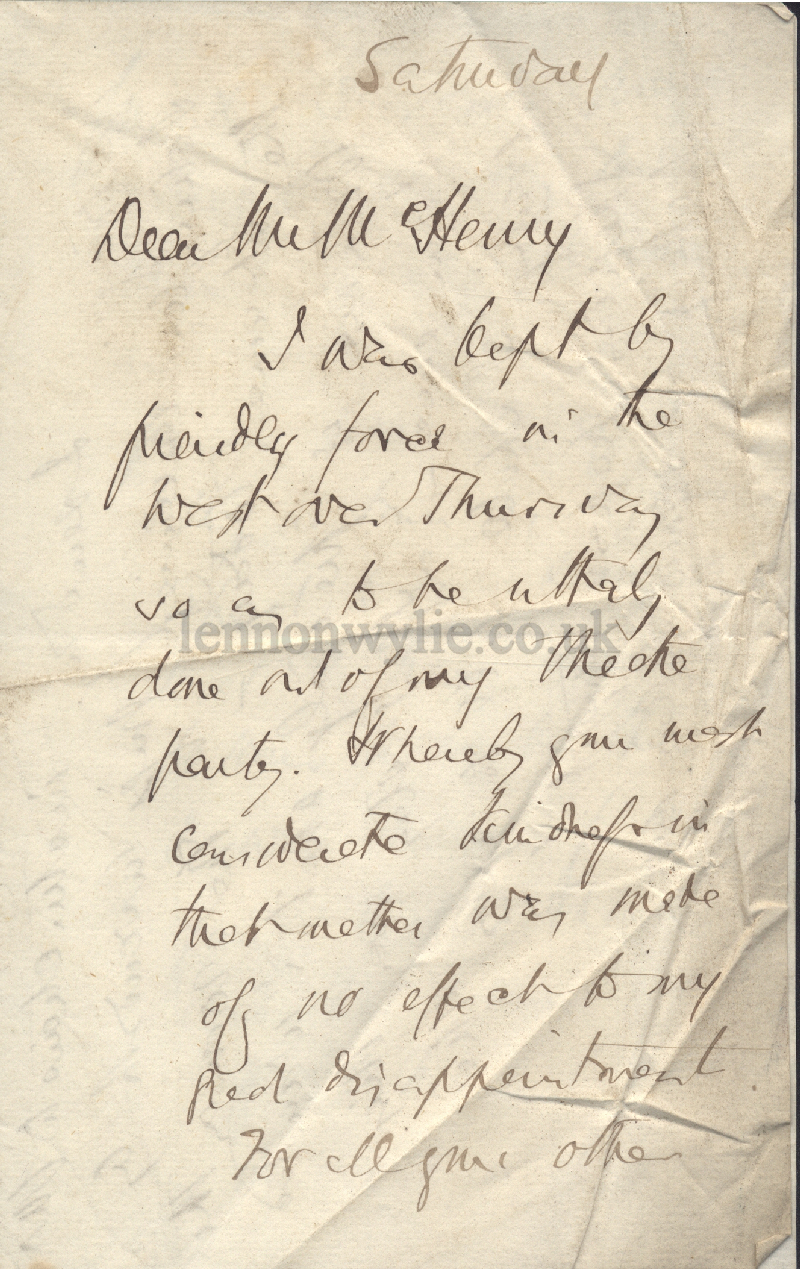 Saturday
Dear Mr McHenry
I was kept by
friendly force in the
West over Thursday
so as to be utterly
lennonwylie.co.uk
done out of my Theatre
party. Whereby your most
considerate kindness in
that matter was made
of no effect to my
real disappointment.
For all your other